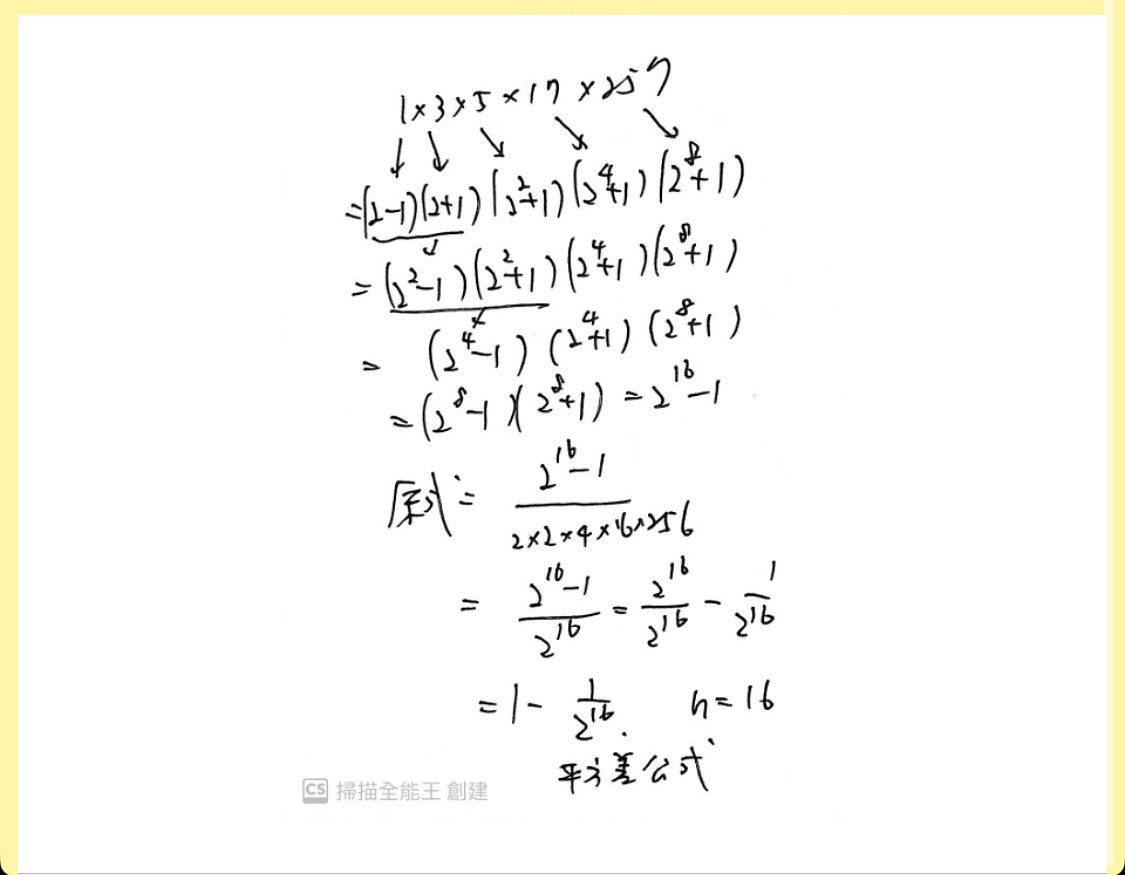 1×3×5×17×257
=(2-1)(2+1)(2²+1)(2⁴+1)(2⁸+1)
=(2²-1)(2²+1)(2⁴+1)(2⁸+1)
= (2⁴-1)(2⁴+1)(2⁸+1)
=(2⁸-1)(2⁸+1)=2¹⁶-1
原式= (2¹⁶-1)/(2×2×4×16×256)
= (2¹⁶-1)/2¹⁶ = 2¹⁶/2¹⁶ - 1/2¹⁶
=1- 1/2¹⁶. n=16
平方差公式
CS 掃描全能王 創建